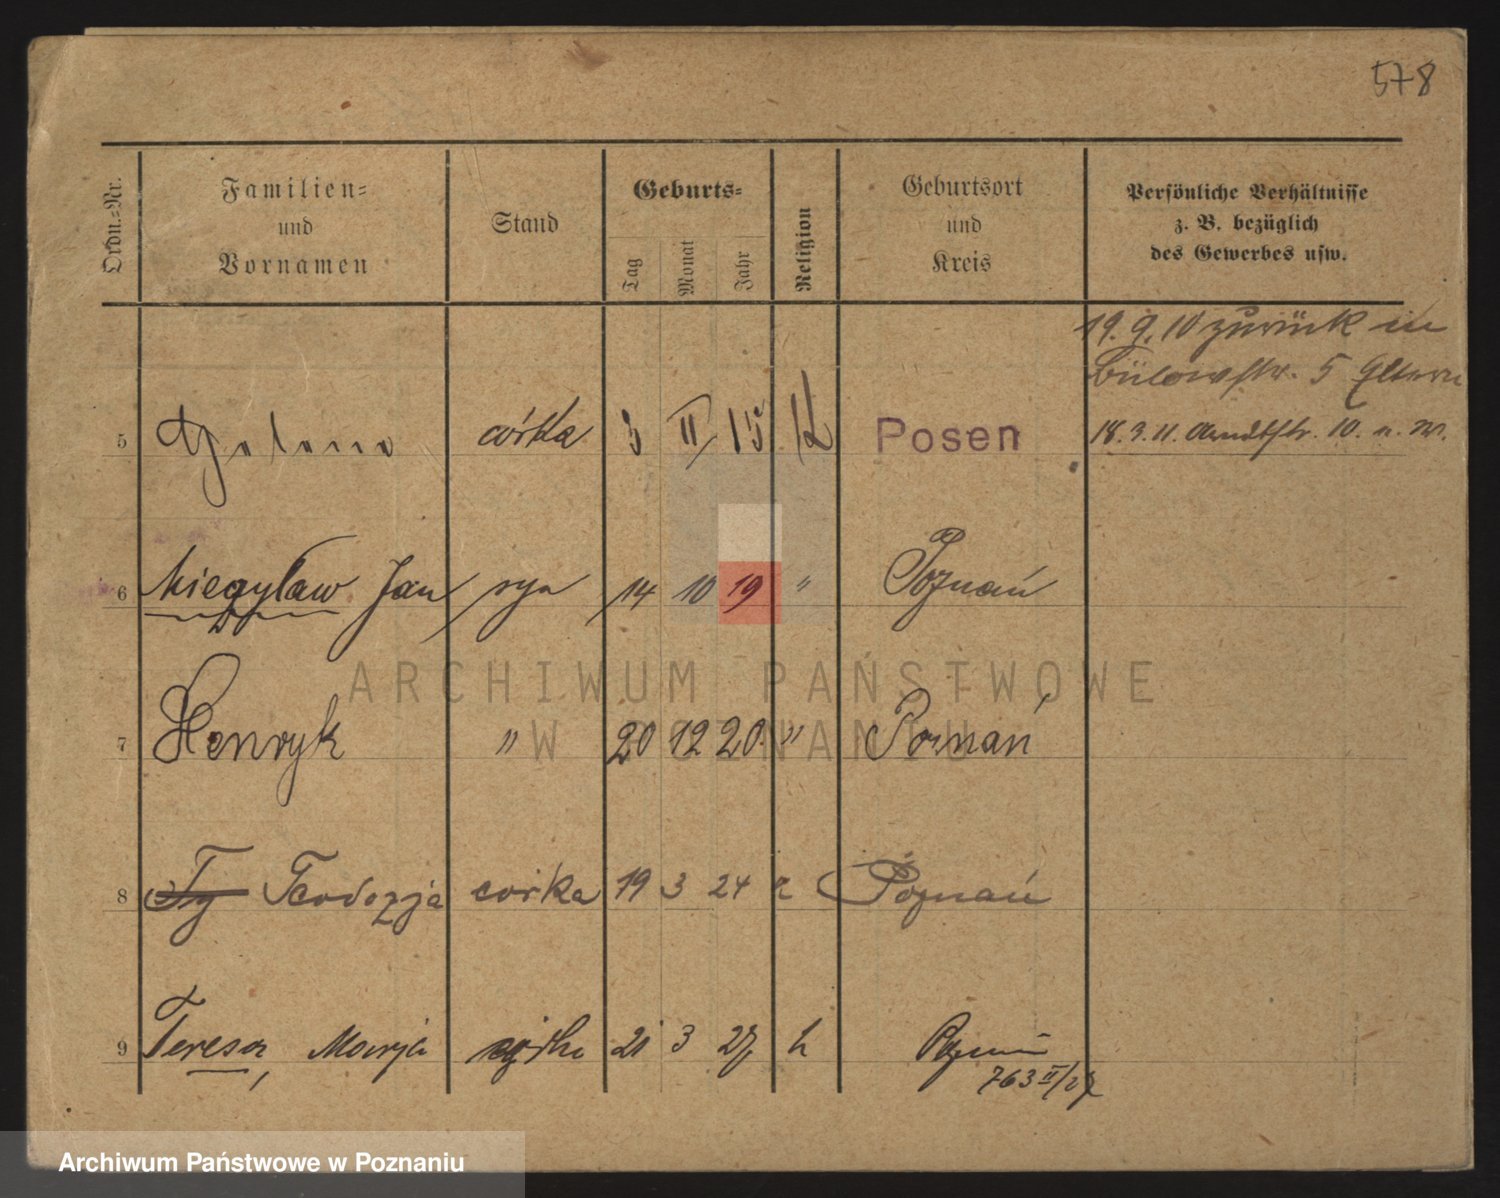 578
Ordn.-Nr.
Familien-
und
Vornamen
Stand
Geburts-
Tag
Monat
Jahr
Religion
Geburtsort
und
Kreis
Persönliche Verhältnisse
z. B. bezüglich
des Gewerbes usw.
19. 9. 10 zurück in
Bülowstr. 5 Eltern
5 córka 3 II 15 K Posen 18. 3. 11. Arndtstr. 10. n. W.
6 Mieczysław Jan syn 14 10 19 " Poznań
7 Henryk " 20 12 20. " Poznań
8 Ty Teodozja córka 19 3 24 k Poznań
9 Teresa, Marja córka 21 3 27 k Poznań
763 II/27
ARCHIWUM PAŃSTWOWE
W POZNANIU
Archiwum Państwowe w Poznaniu